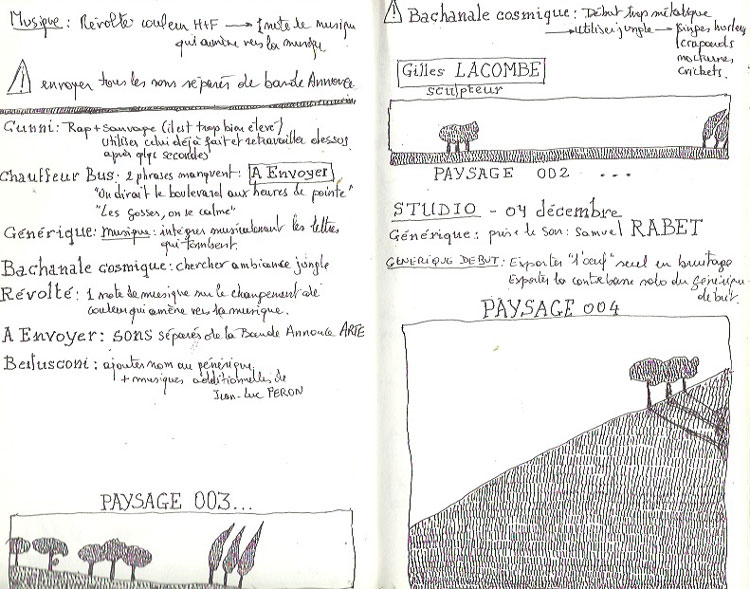 Musique : Révolte couleur H+F → 1 note de musique
qui amène vers la musique
⚠ envoyer tous les sons séparés de bande Annonce
Gunni : Rap + sauvage (il est trop bien élevé)
utiliser celui déjà fait et retravailler dessus
après qlqs secondes
Chauffeur Bus. 2 phrases manquent : A Envoyer
"On dirait le boulevard aux heures de pointe"
"Les gosses, on se calme"
Générique : musique : intégrer musicalement les lettres
qui tombent.
Bachanale cosmique : chercher ambiance jungle
Révolté : 1 note de musique sur le changement de
couleur qui amène vers la musique.
A Envoyer : sons séparés de la Bande Annonce ARTE
Berlusconi : ajouter nom au générique
+ musiques additionnelles de
Jean-Luc PERON
PAYSAGE 003...
⚠ Bachanale cosmique : Début trop métallique
→ utiliser jungle → singes hurleurs
crapauds
nocturnes
crickets.
Gilles LACOMBE
sculpteur
PAYSAGE 002 ...
STUDIO - 04 décembre
Générique : prise de son : Samuel RABET
GENERIQUE DEBUT : Exporter "l'oeuf" seul en bruitage
Exporter la contrebasse solo du générique
début.
PAYSAGE 004